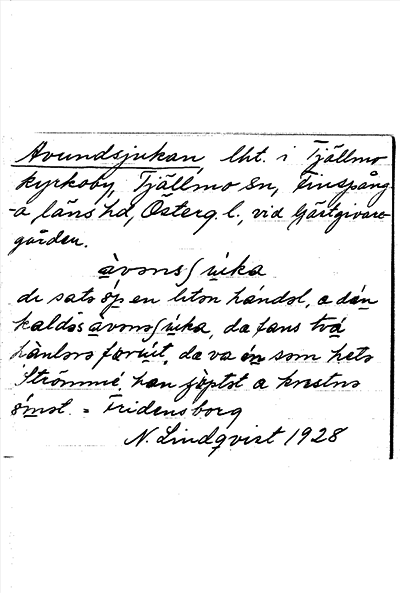 Avundsjukan, lht. i Tjällmo
kyrkoby, Tjällmo sn, Finspång-
a läns hd, Österg. l., vid Gästgivare-
gården.
àvonsʃùka
di satə óp en litən hándəl, a dán
kaldəs àvonsʃùka, da fans två
hànlərə forút, da va én som hetə
Strömmé, han
əmət. = Fridensborg
N. Lindqvist 1928